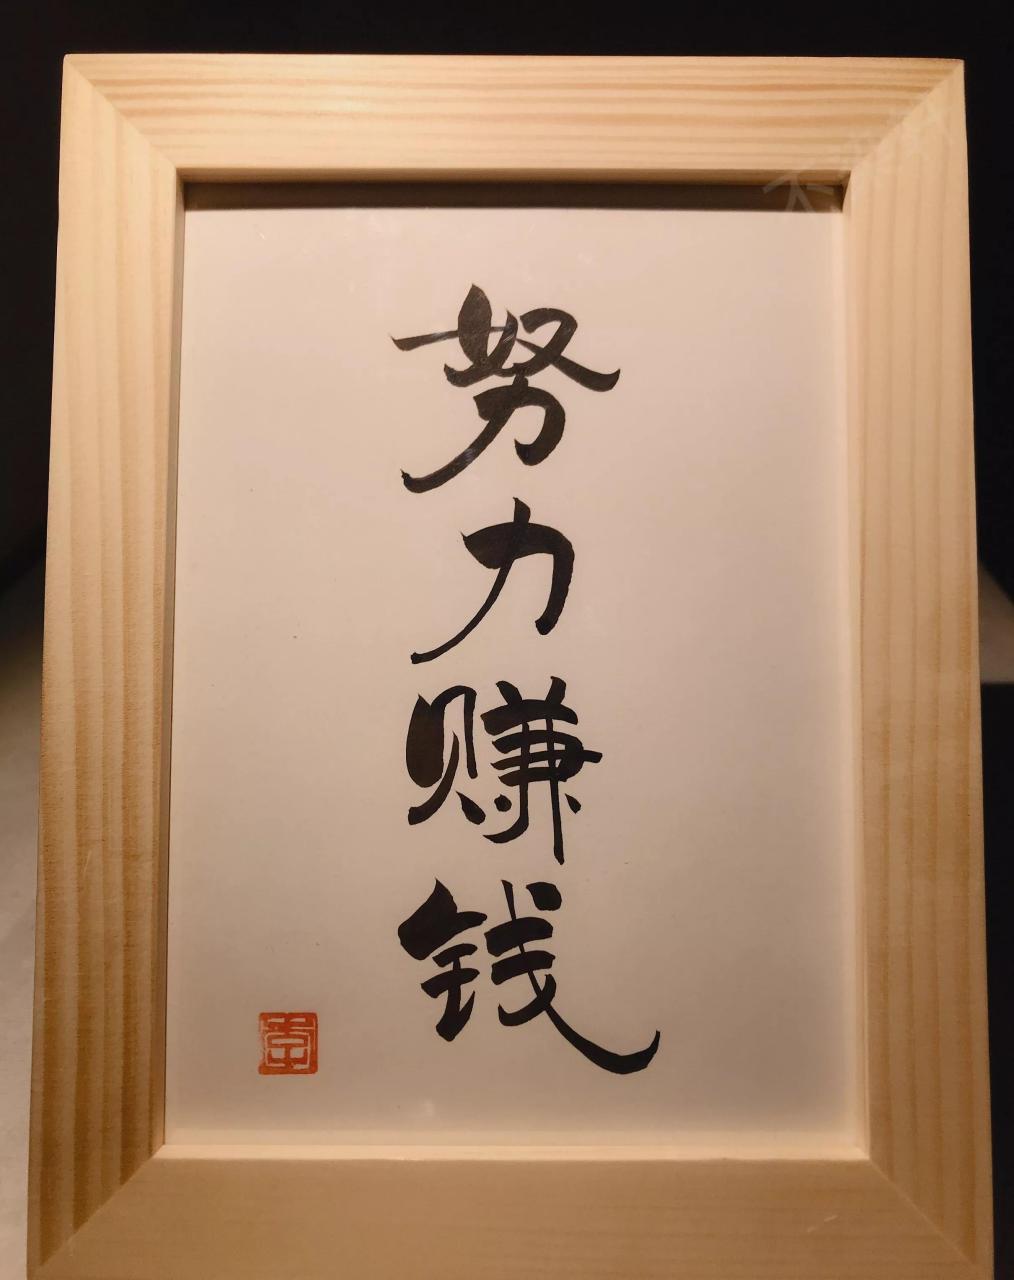 努力赚钱